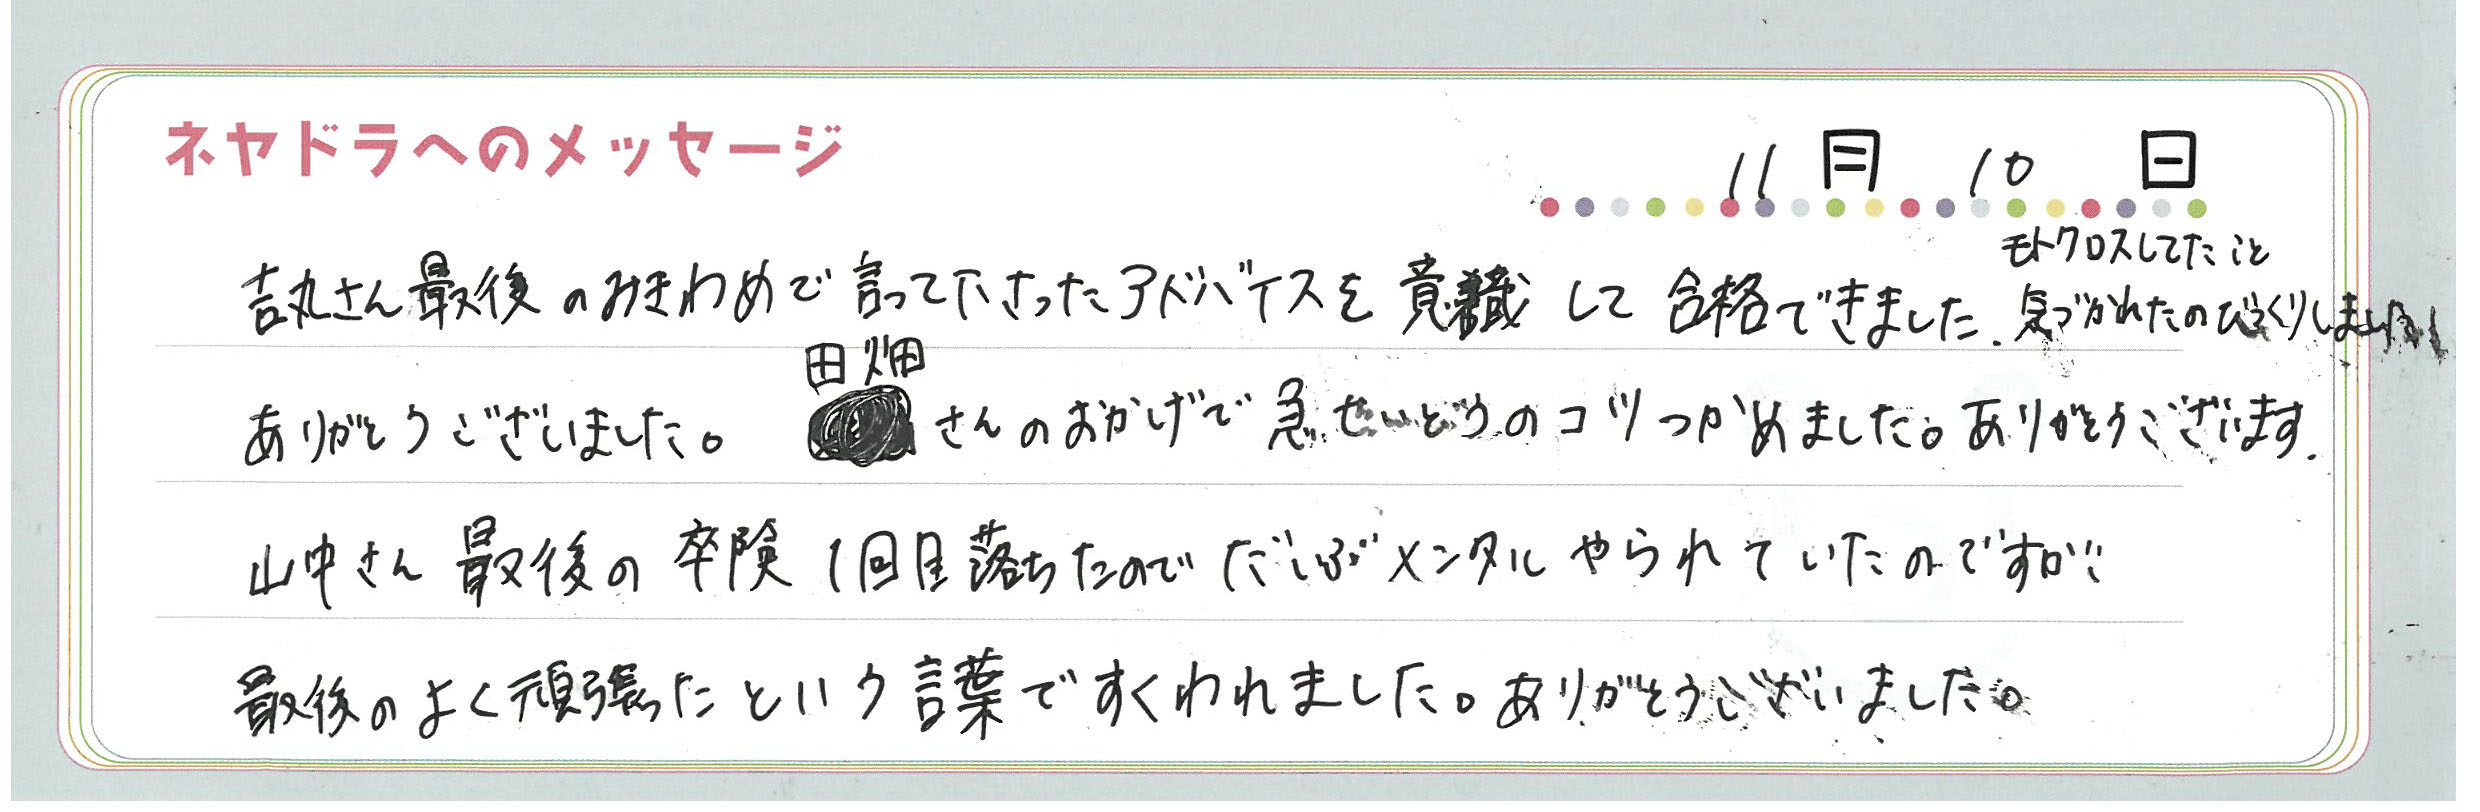 ネヤドラへのメッセージ
11月 10日
モトクロスしてたこと
吉丸さん最後のみきわめで言って下さったアドバイスを意識して合格できました。気づかれたのびっくりしました!
田畑
ありがとうございました。 さんのおかげで急せいどうのコツつかめました。ありがとうございます。
山中さん最後の卒険1回目落ちたのでだいぶメンタルやられていたのですが
最後のよく頑張ったという言葉ですくわれました。ありがとうございました。